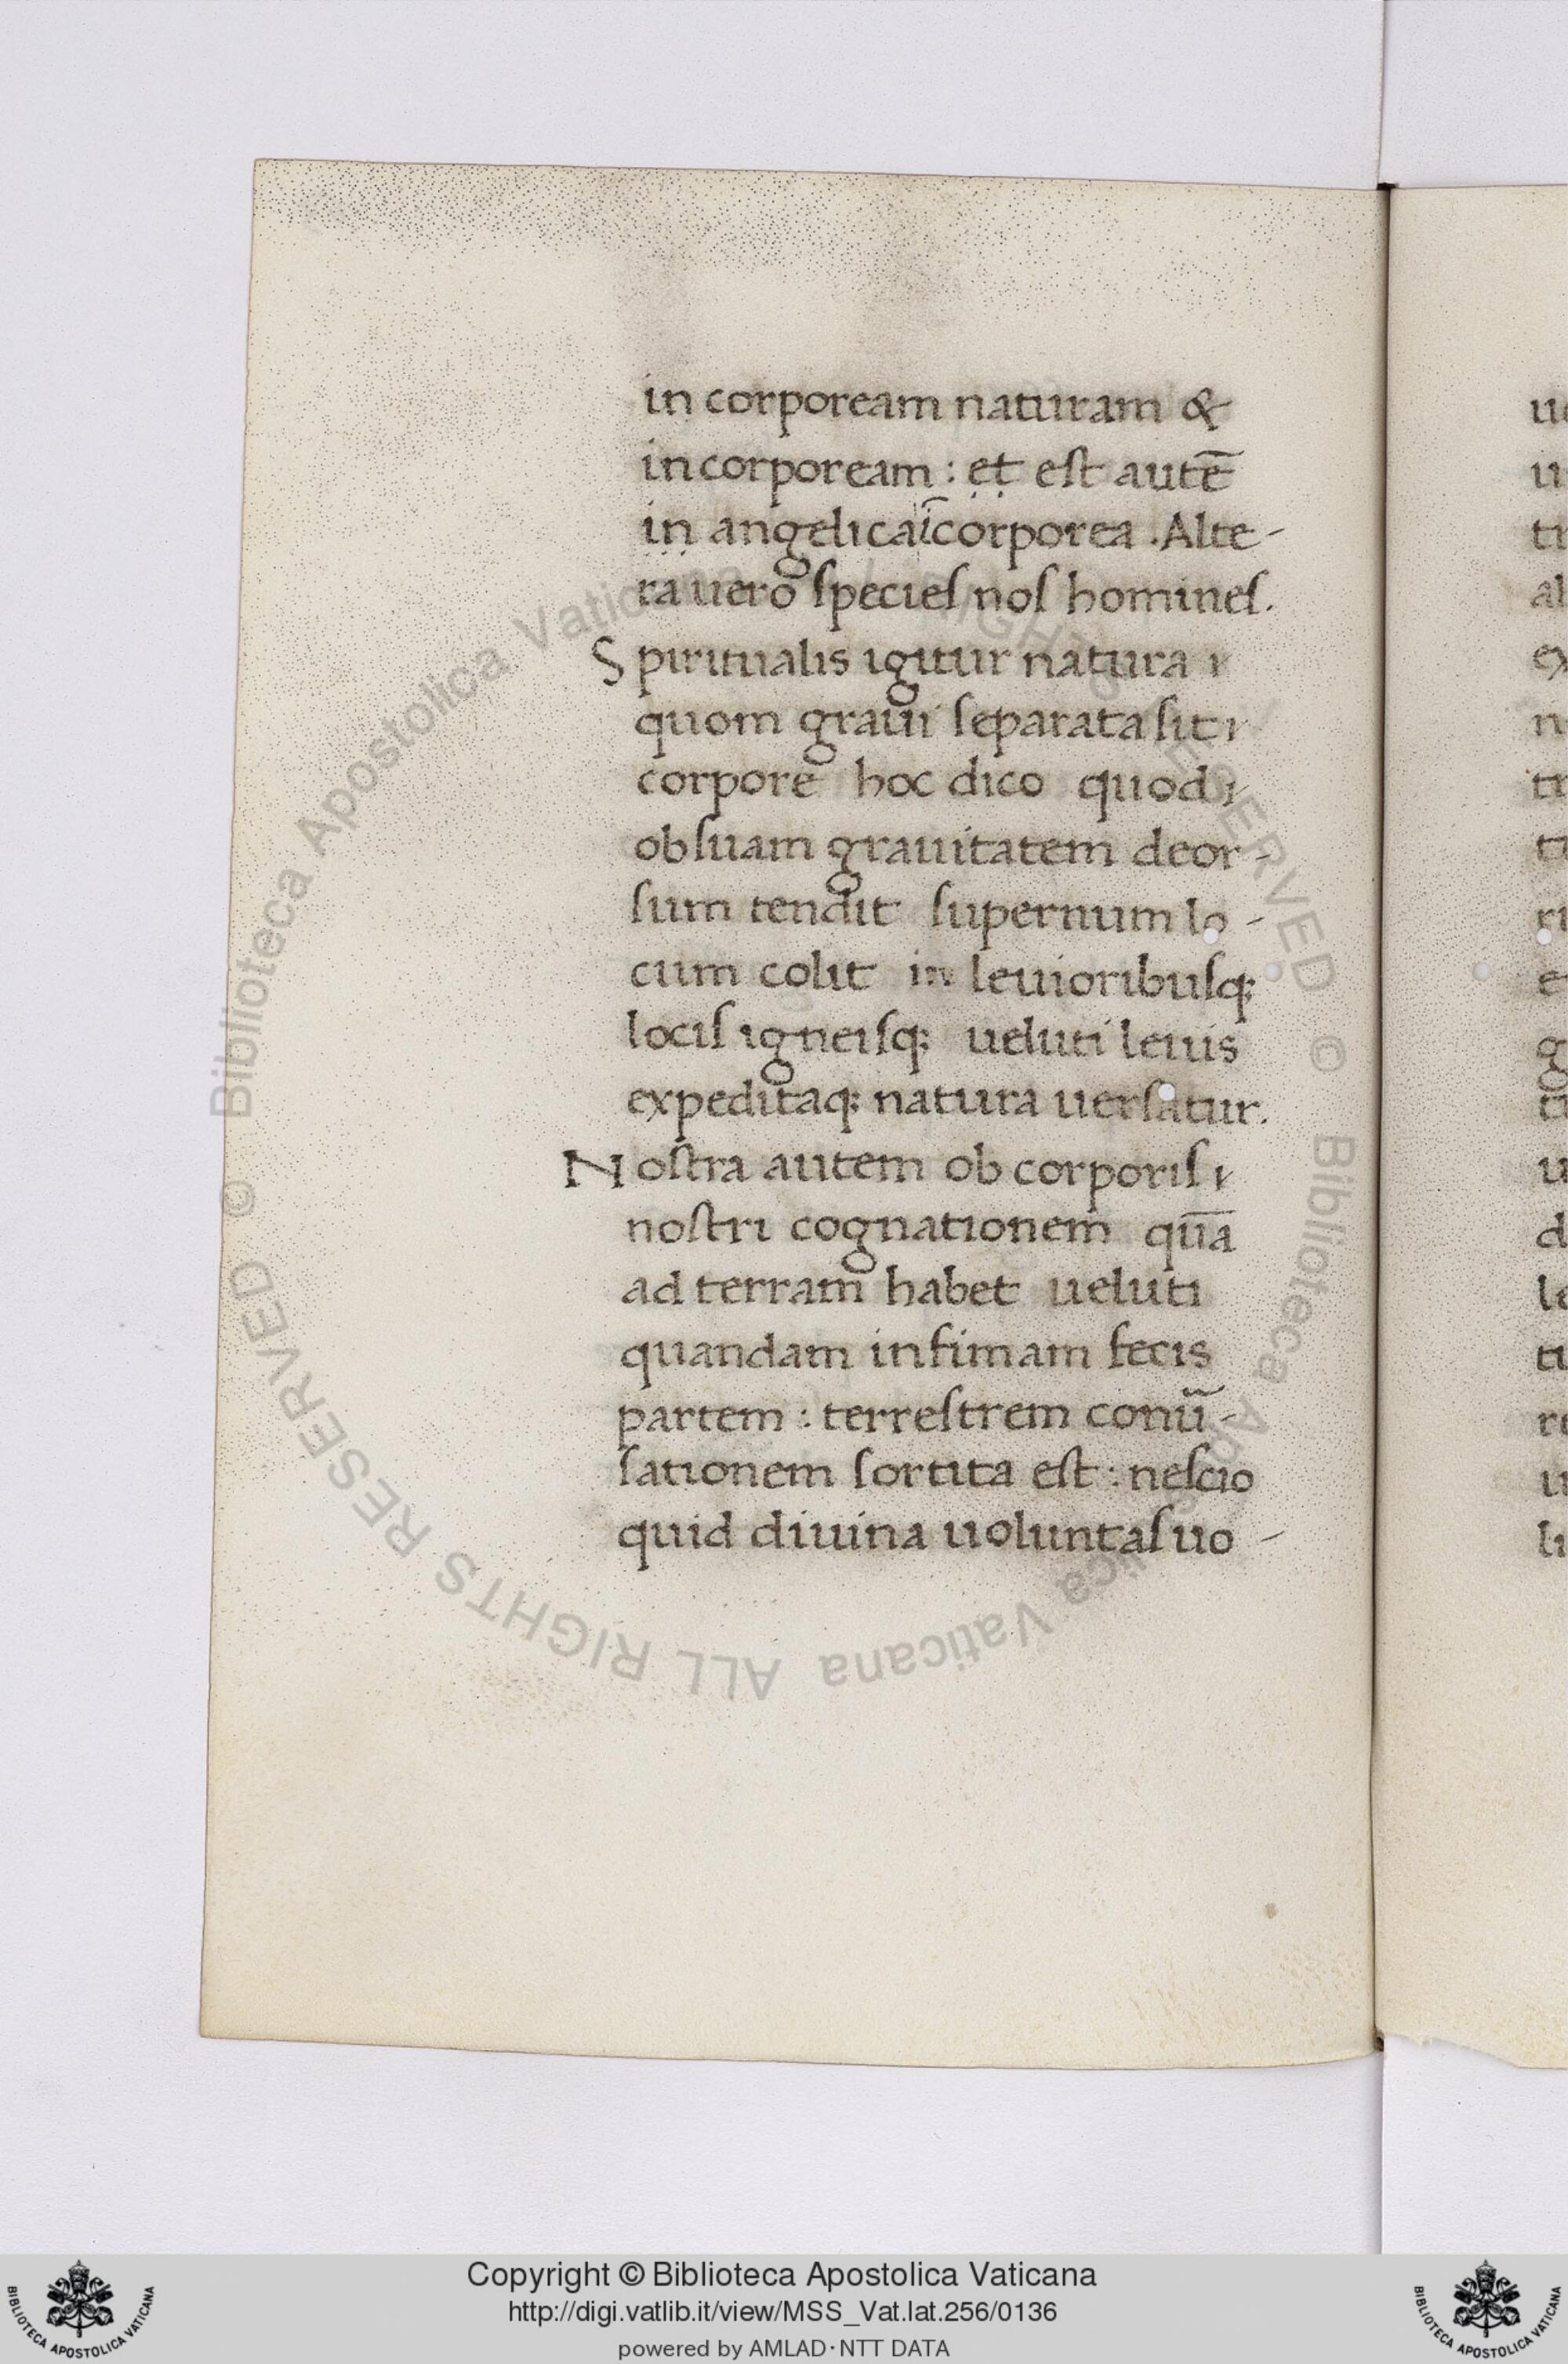 in corpoream naturam &
incorpoream : et est autē
in angelica īcorporea . Alte-
ra uero ſpecieſ noſ homineſ.
Spiritualis igitur natura
quom graui ſeparata ſit
corpore hoc dico quod
ob ſuam grauitatem deor-
ſum tendit ſupernum lo-
cum colit in leuioribuſq;
lociſ igneiſq; ueluti leuis
expeditaq; natura uerſatur.
Noſtra autem ob corporiſ
noſtri cognationem quā
ad terram habet ueluti
quandam infimam fecis
partem : terreſtrem conū-
ſationem ſortita eſt : neſcio
quid diuina uoluntaſ uo-
Copyright © Biblioteca Apostolica Vaticana
http://digi.vatlib.it/view/MSS_Vat.lat.256/0136
powered by AMLAD·NTT DATA
BIBLIOTECA APOSTOLICA VATICANA
BIBLIOTECA APOSTOLICA VATICANA
© Biblioteca Apostolica Vaticana ALL RIGHTS RESERVED © Biblioteca Apostolica Vaticana ALL RIGHTS RESERVED